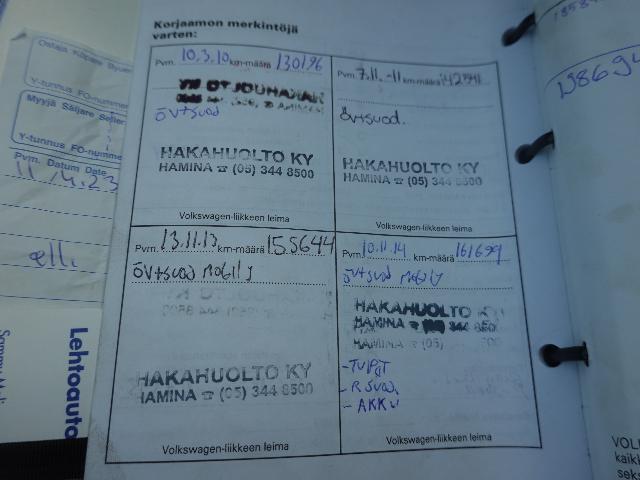 Korjaamon merkintöjä
varten:
Pvm. 10.3.10 km-määrä 130196
ÖVtSUOD
HAKAHUOLTO KY
HAMINA ☎ (05) 344 8500
Volkswagen-liikkeen leima
Pvm. 7.11.-11 km-määrä
ÖVtSUOD.
HAKAHUOLTO KY
HAMINA ☎ (05) 344 8500
Volkswagen-liikkeen leima
Pvm. 13.11.13 km-määrä 155644
ÖVtSUOD Mobil 1
HAKAHUOLTO KY
HAMINA ☎ (05) 344 8500
Volkswagen-liikkeen leima
Pvm. 10.11.14 km-määrä 161699
ÖVtSUOD Mobil 1
HAKAHUOLTO KY
HAMINA ☎ 344 850
HAMINA ☎ (05)
- TVPÄT
- R SUOD.
- AKKU
Volkswagen-liikkeen leima
Ostaja Köpare Buyer
Y-tunnus FO-nummer
Myyjä Säljare Seller
Y-tunnus FO-numme
Pvm. Datum Date
11/4.23
Lehtoauto
VOL
kaikk
seks